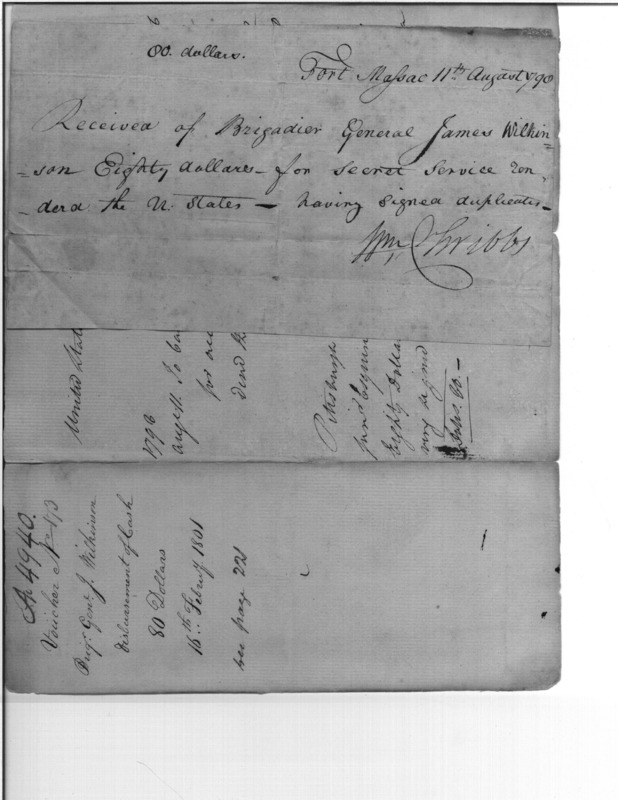 80. dollars.
Fort Massac 11th August 1798
Received of Brigadier General James Wilkin=
=son Eighty dollars - for secret service ren-
-derd the U. States - having signed duplicates -
Wm Chribbs
United Stat
1798
August 11. To Ca
for
derd
Pittsburgh
Eighty Dolla
ving signed
80. -
No 4940.
Voucher No 173
Brigr Genr J. Wilkinson
disbursement of Cash
80 Dollars
16th Februy 1801
see page 221